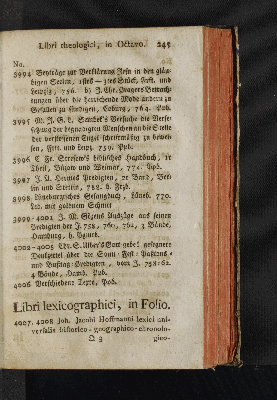 Libri theologici, in Octavo. 245
No.
3994 Beyträge zur Verklärung Jesu in den gläu-
bigen Seelen, 1stes — 3tes Stück, Frkf. und
Leipzig, 756. b) J. Chr. Betrach-
tungen über die herrschende Mode andern zu
Gefallen zu sündigen, Coburg, 764. Pbd.
3995 M. J. G. L. Versuche die Verse-
tzung der begnadigten Menschen an die Stelle
der verstoßenen Engel schriftmäßig zu bewei-
sen, Frf. und Leipz. 759. Ppbd.
3996 C. Fr. biblisches Handbuch, 1r
Theil, Bützow und Weimar, 774. Ppbd.
3997 J. A. Hermes Predigten, 2r Band, Ber-
lin und Stettin, 788. h. Frzb.
3998 Lüneburgisches Gesangbuch, Lüneb. 770.
Led. mit goldnem Schnitt
3999-4001 J. M. Götzens Auszüge aus seinen
Predigten der J. 758, 760, 764, 3 Bände,
Hamburg, h. Pgmtb.
4002-4005 Chr. S. Ulber's Gott geheil. gesegnete
Denkzettel über die Sonn- Fest- Passions-
und Bußtag-Predigten, vom J. 758-62.
4 Bände, Hamb. Ppb.
4006 Verschiedene Texte, Ppd.
Libri lexicographici, in Folio.
4007. 4008 Joh. Jacobi Hoffmanni lexici uni-
versalis historico - geographico - chronolo-
Q 3 gico-